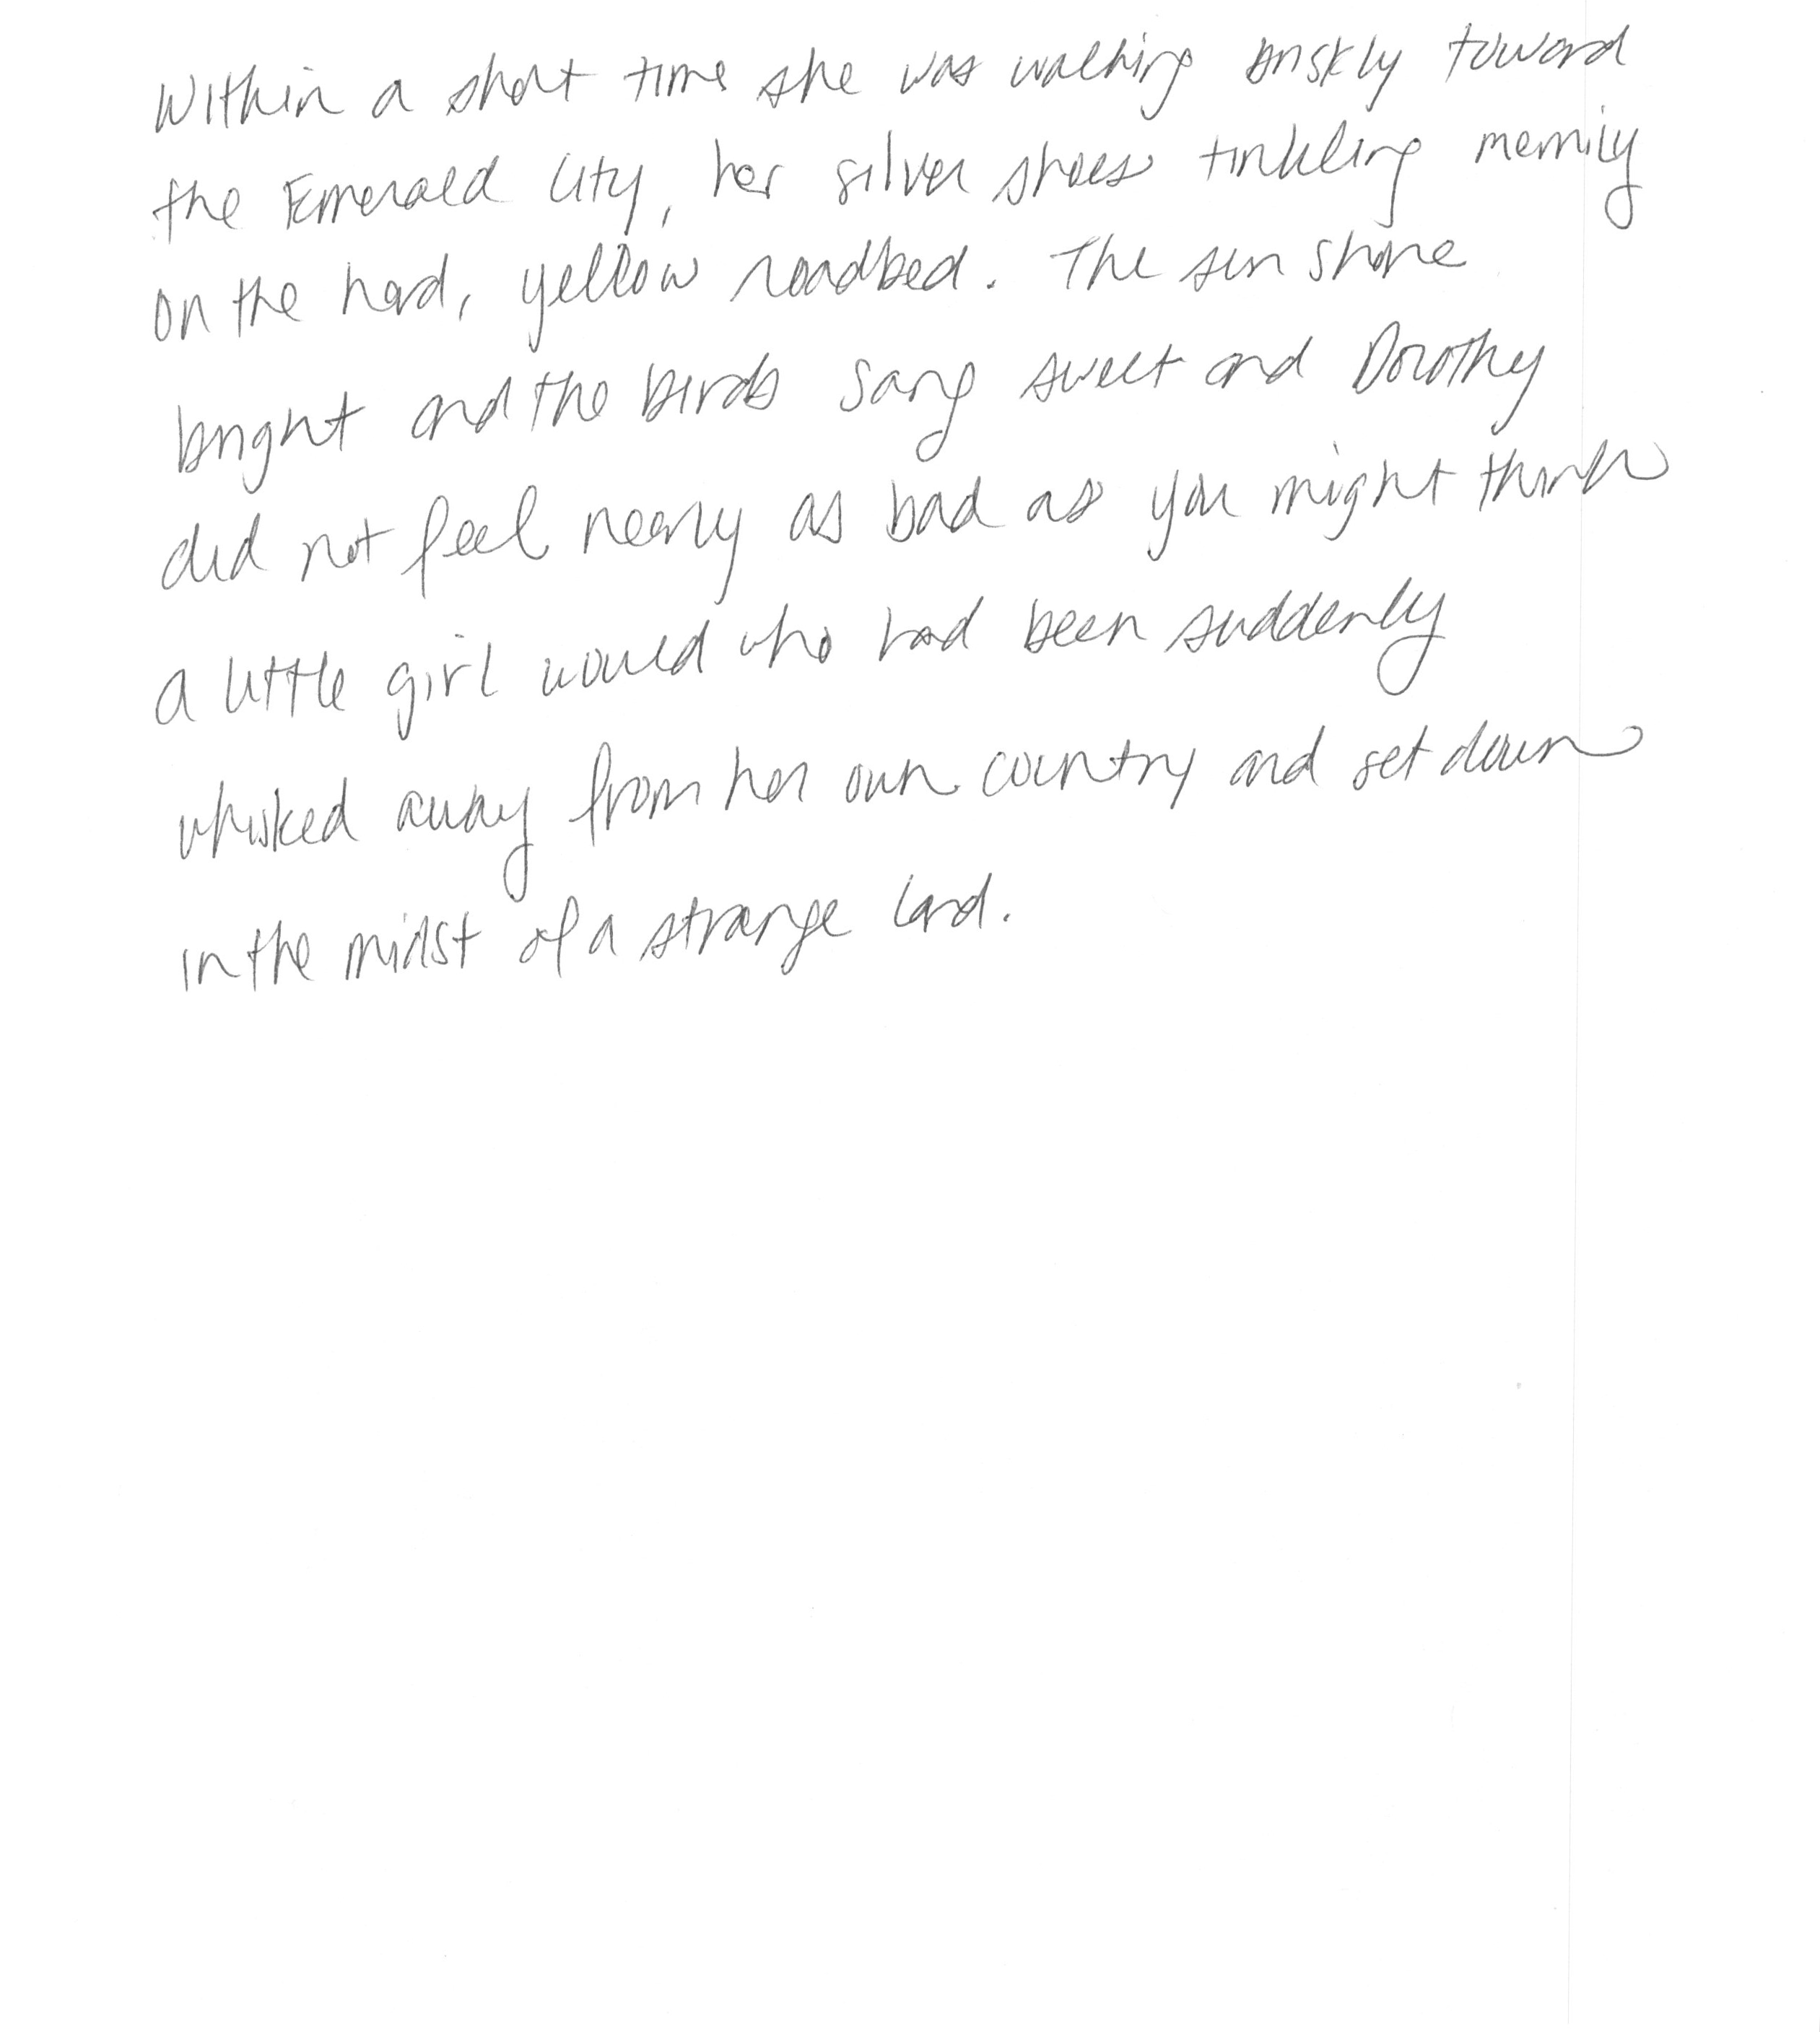 Within a short time she was walking briskly toward
the Emerald City, her silver shoes tinkling merrily
on the hard, yellow roadbed. The sun shone
bright and the birds sang sweet and Dorothy
did not feel nearly as bad as you might think
a little girl would who had been suddenly
whisked away from her own country and set down
in the midst of a strange land.